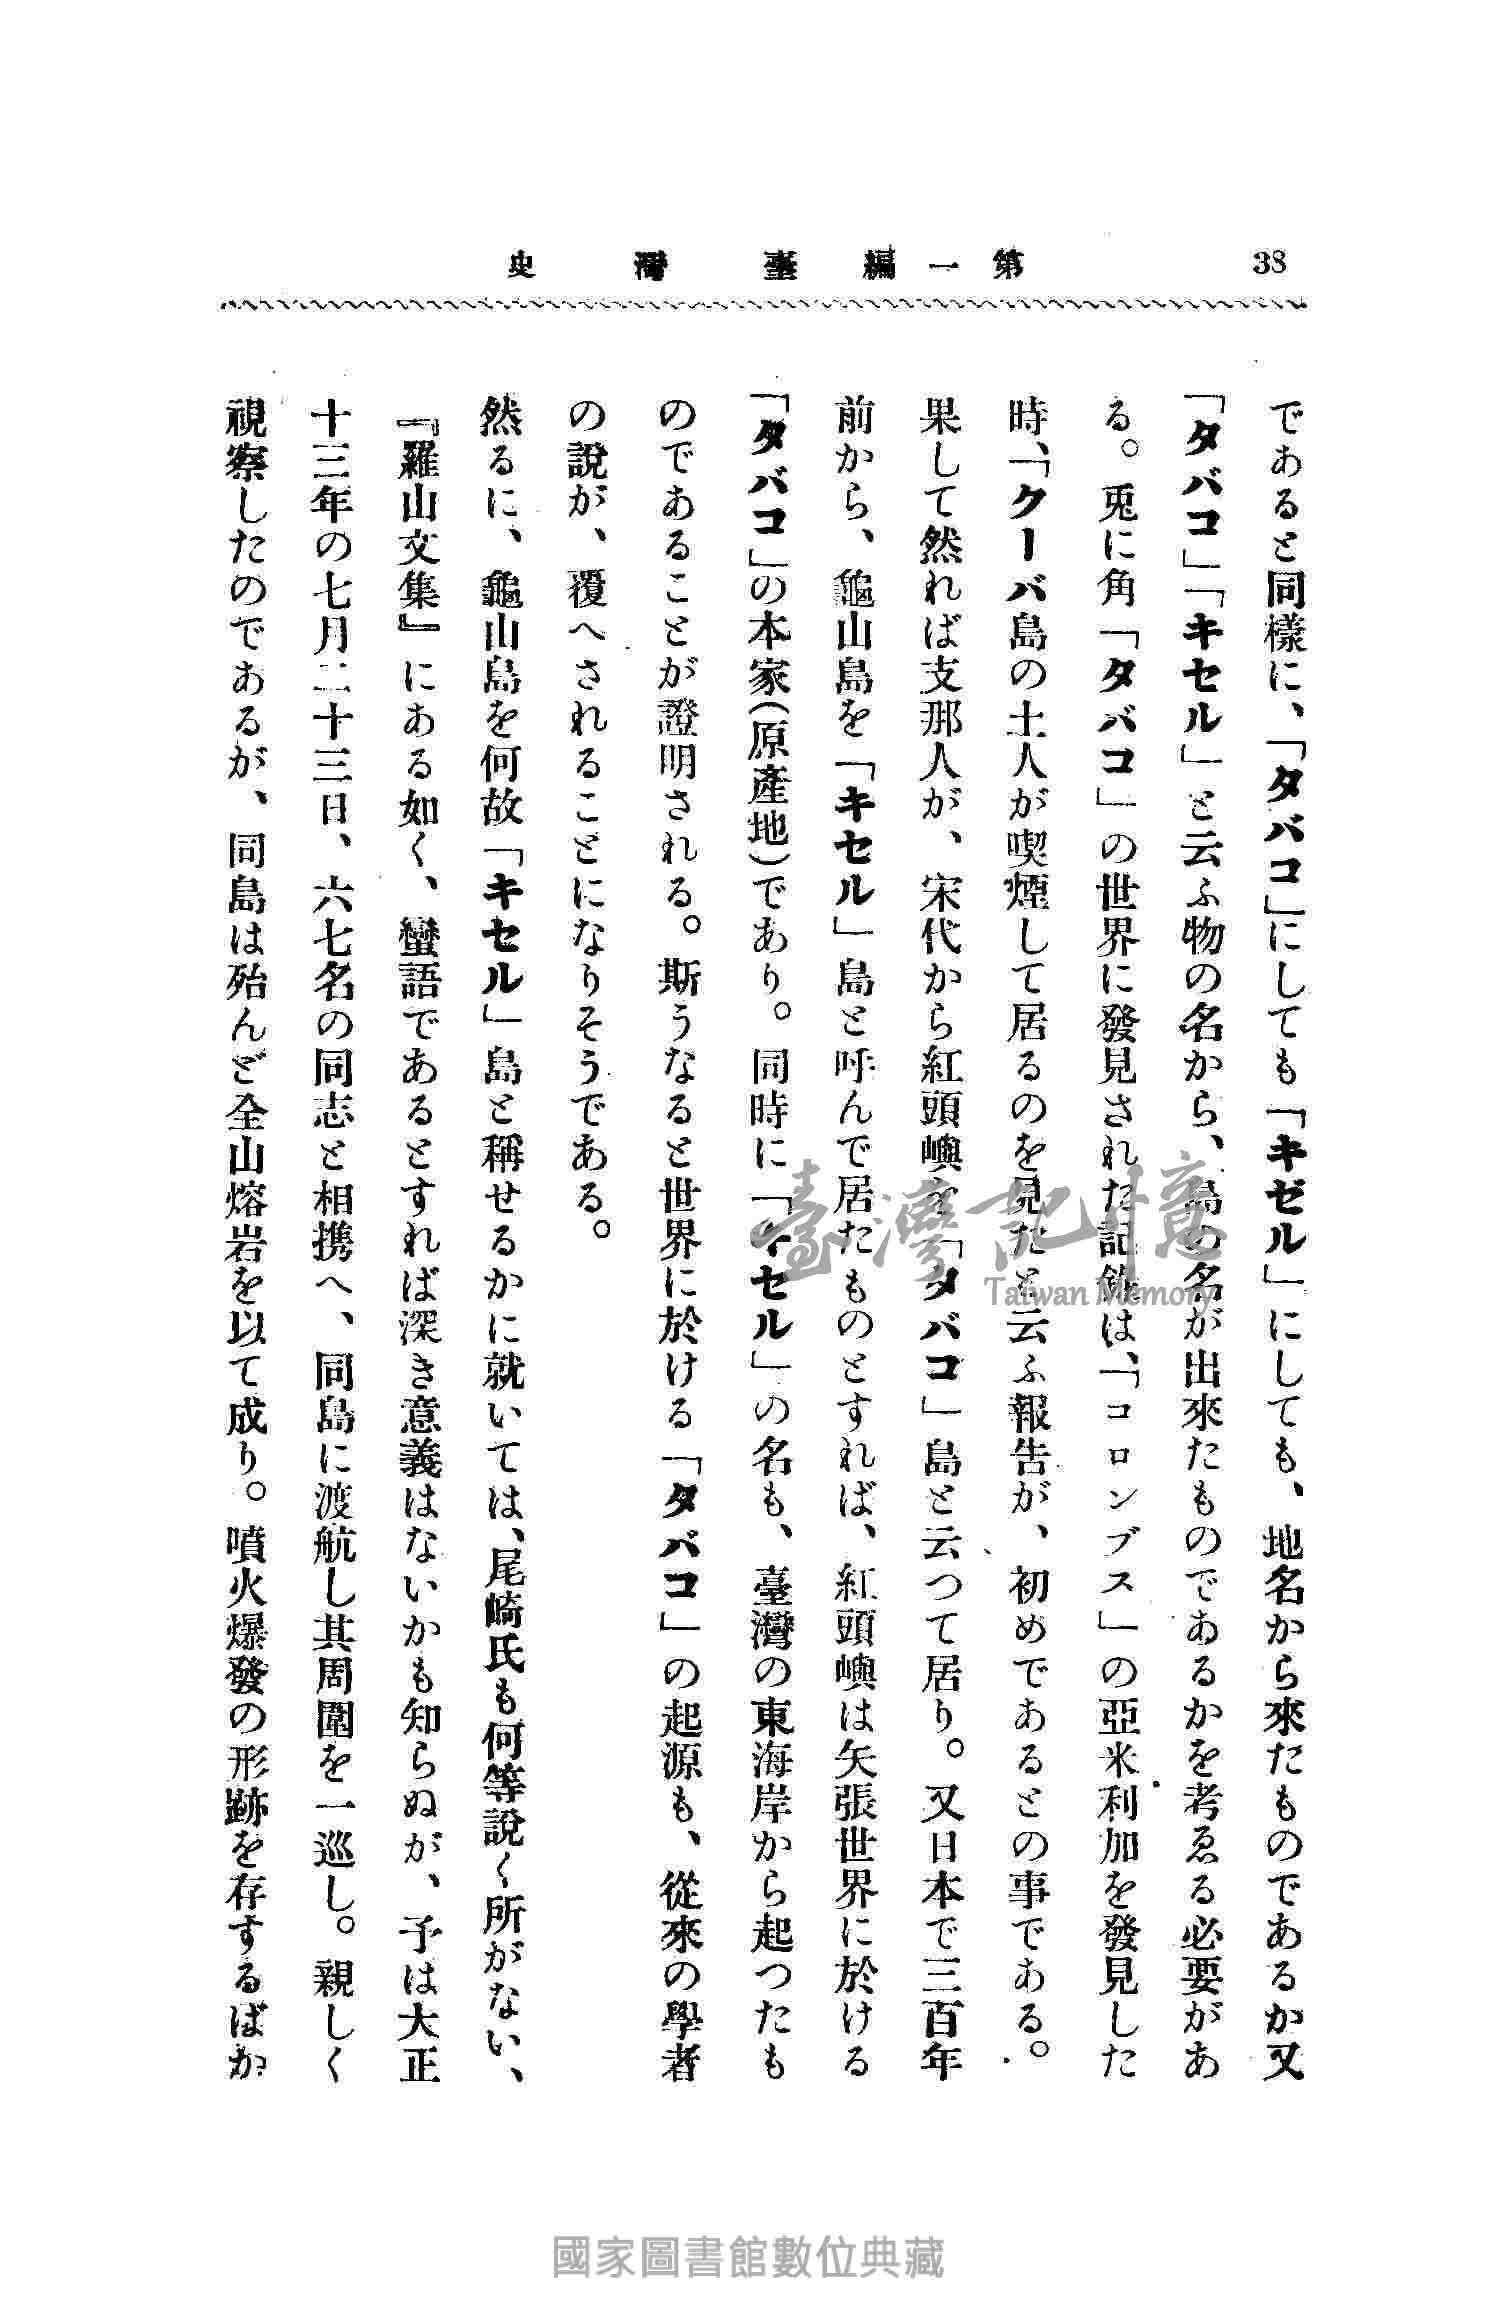 38
第一編 臺灣史
であると同樣に、「タバコ」にしても「キゼル」にしても、地名から來たものであるか又
「タバコ」「キセル」と云ふ物の名から、島の名が出來たものであるかを考ゑる必要があ
る。兎に角「タバコ」の世界に發見された記錄は、「コロンブス」の亞米利加を發見した
時、「クーバ島の土人が喫煙して居るのを見たと云ふ報告が、初めであるとの事である。
果して然れば支那人が、宋代から紅頭嶼を「タバコ」島と云つて居り。又日本で三百年
前から、龜山島を「キセル」島と呼んで居たものとすれば、紅頭嶼は矢張世界に於ける
「タバコ」の本家(原產地)であり。同時に「キセル」の名も、臺灣の東海岸から起つたも
のであることが證明される。斯うなると世界に於ける「タバコ」の起源も、從來の學者
の說が、覆へされることになりそうである。
然るに、龜山島を何故「キセル」島と稱せるかに就いては、尾崎氏も何等說く所がない、
『羅山文集』にある如く、蠻語であるとすれば深き意義はないかも知らぬが、予は大正
十三年の七月二十三日、六七名の同志と相携へ、同島に渡航し其周圍を一巡し。親しく
視察したのであるが、同島は殆んど全山熔岩を以て成り。噴火爆發の形跡を存するばか
臺灣記憶
Taiwan Memory
國家圖書館數位典藏